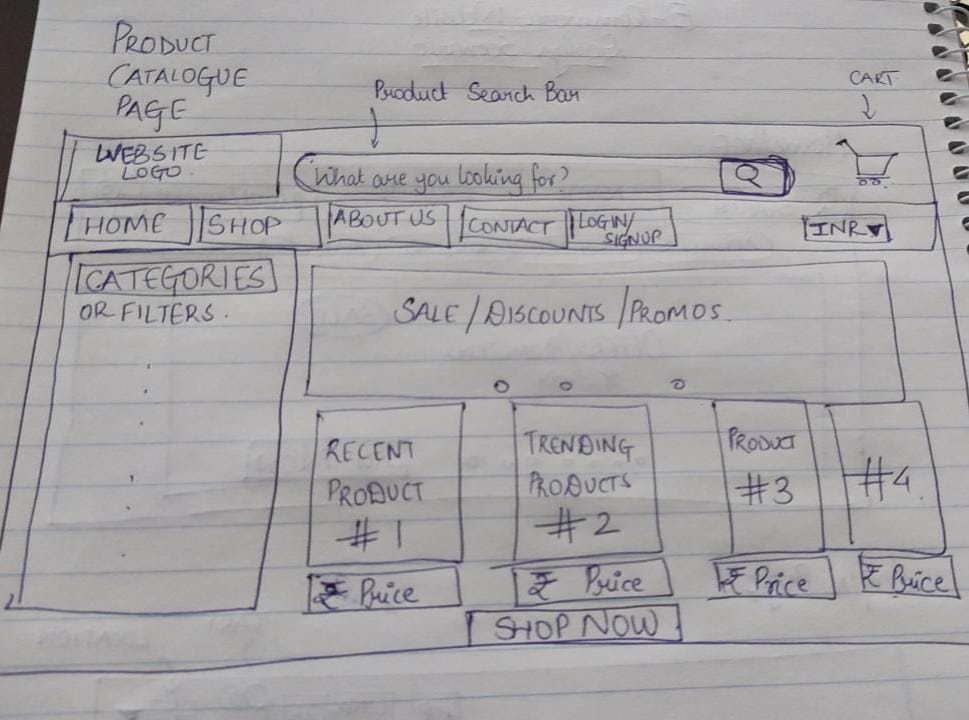 PRODUCT
CATALOGUE
PAGE
Product Search Bar
CART
WEBSITE
LOGO
What are you looking for?
HOME
SHOP
ABOUT US
CONTACT
LOGIN/
SIGNUP
INR
CATEGORIES
OR FILTERS.
SALE/DISCOUNTS/PROMOS.
RECENT
PRODUCT
#1
TRENDING
PRODUCTS
#2
PRODUCT
#3
#4
₹ Price
₹ Price
₹ Price
₹ Price
SHOP NOW